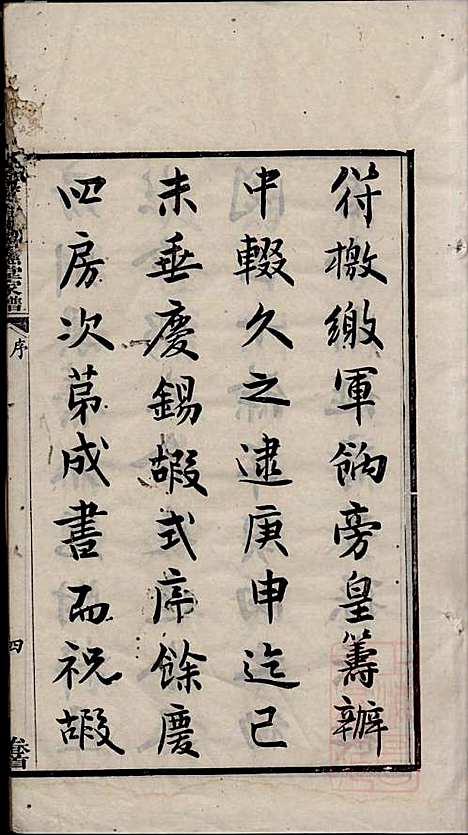 符檄繳軍餉旁皇籌辦
中輟久之逮庚申迄己
未垂慶錫嘏式序餘慶
四房次苐成書而祝嘏
序
四
卷首